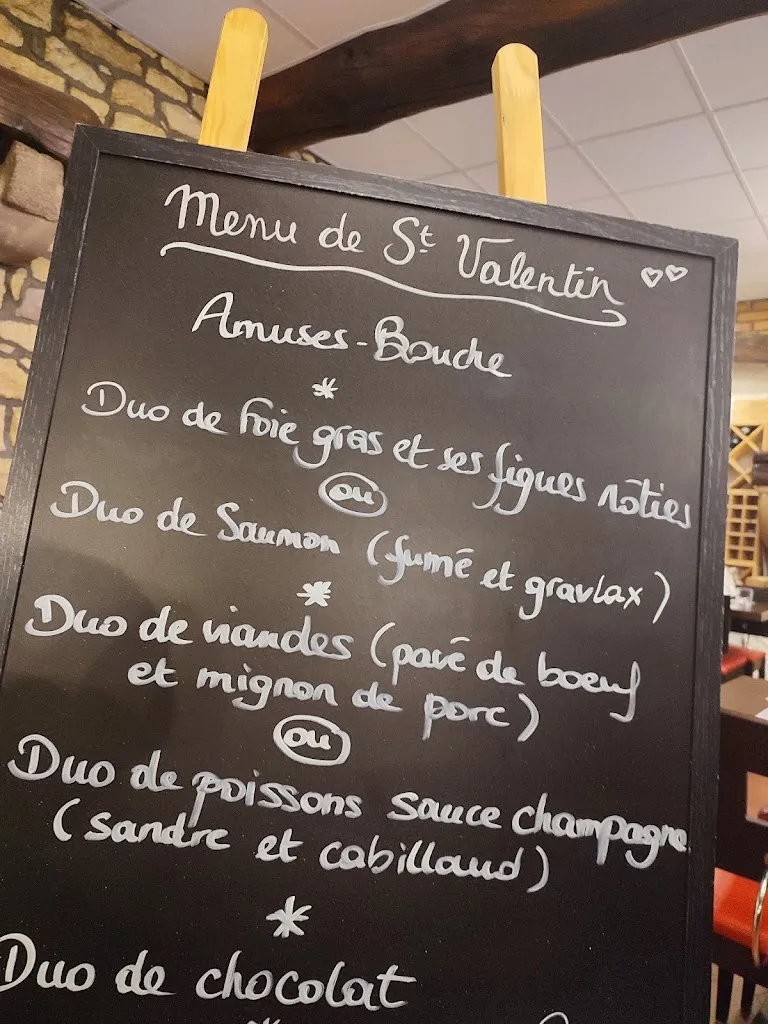 Menu de St Valentin
Amuses-Bouche
*
Duo de foie gras et ses figues rôties
ou
Duo de Saumon (fumé et gravlax)
*
Duo de viandes (pavé de boeuf
et mignon de porc)
ou
Duo de poissons sauce champagne
(sandre et cabillaud)
*
Duo de chocolat